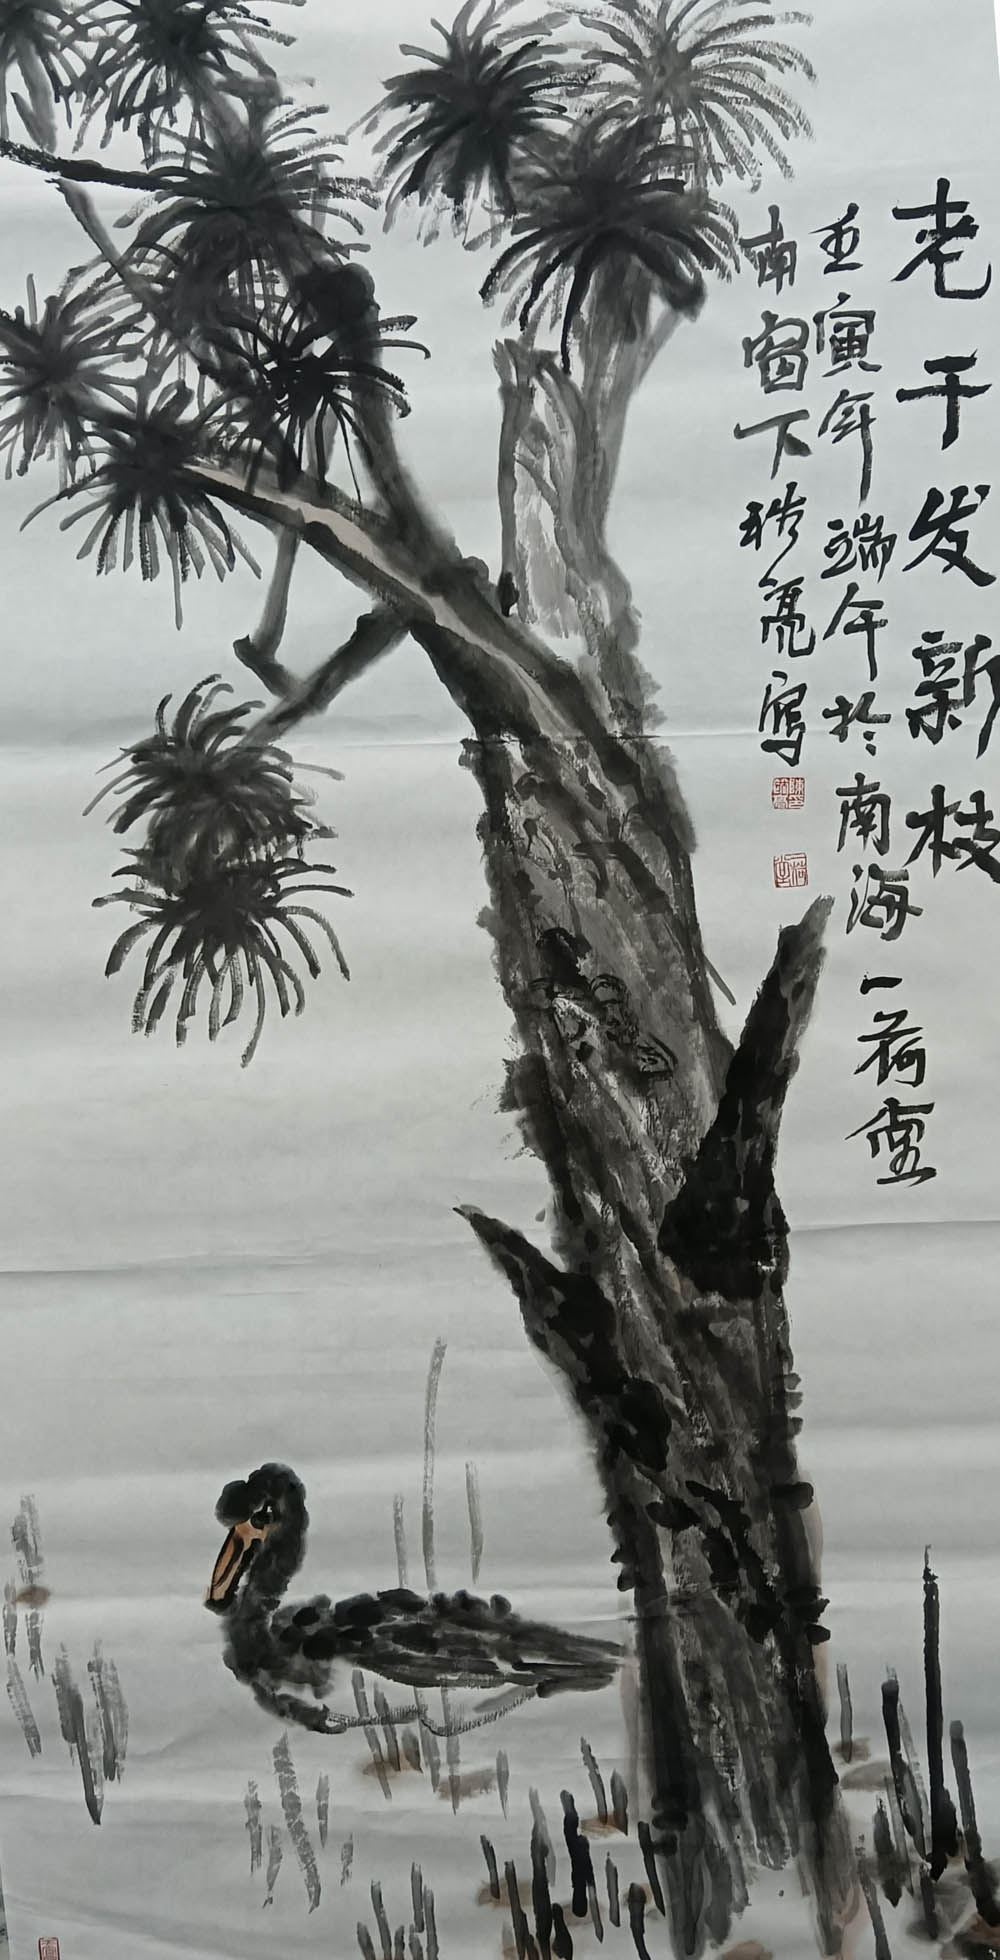 老干发新枝
壬寅年端午於南海一荷堂
南窗下 亮寫